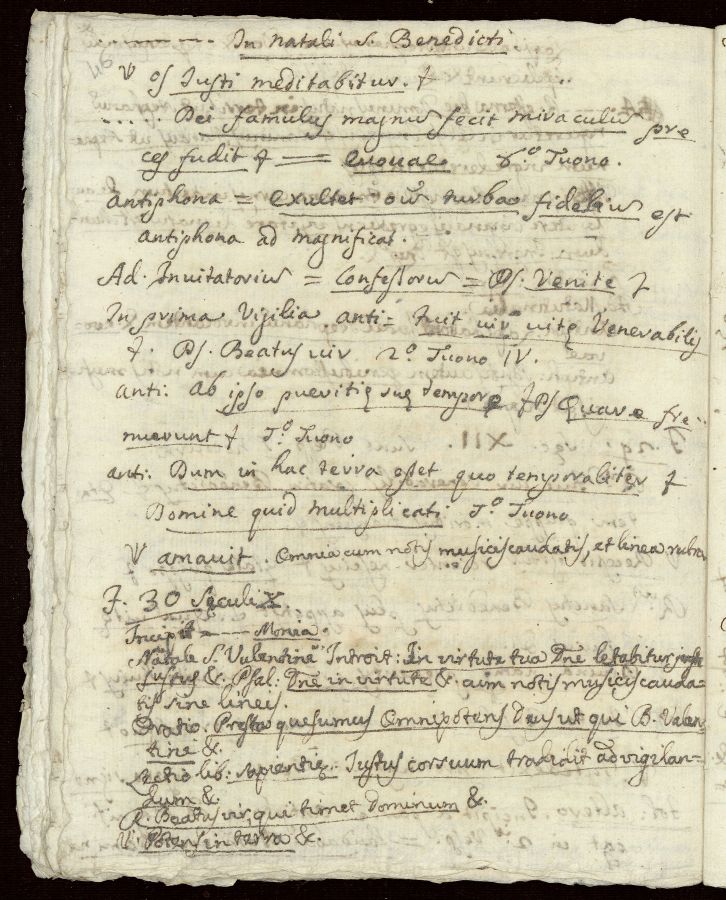 In natali S. Benedicti
46
V os Justi meditabitur. &
..... Dei famulus magnus fecit miraculis pre
ces fudit & = Euouae. 8.º Tuono.
antiphona = Exultet oīū turbae fidelium est
antiphona ad magnificat.
Ad. Inuitatorius = Confessorus = Ps. Venite &
In prima Vigilia anti- Fuit uir uitę Venerabilis
&. Ps. Beatus uir 2º Tuono IV.
anti: ab ipso pueritię suę tempore & Ps Quare fre-
muerunt & Tuono
anti. Dum in hac terra esset quo temporaliter &
Domine quid multiplicati Tuono
V amauit. Omnia cum notis musicis caudatis, et linea rubra
F. 30 Seculi X
Incipit ---- Monia.
Natale S. Valentine Introit: In virtute tua Dne letabitur
Justus &. Psal: Dne in virtute &. cum notis musicis cauda=
tis sine lineis.
Oratio. Presta quesumus Omnipotens Deus ut qui B. Valen-
tini &.
Lectio lib: sapientię: Justus cor suum tradidit ad vigilan=
dum &.
R. Beatus vir, qui timet Dominum &.
V. Potens in terra &.